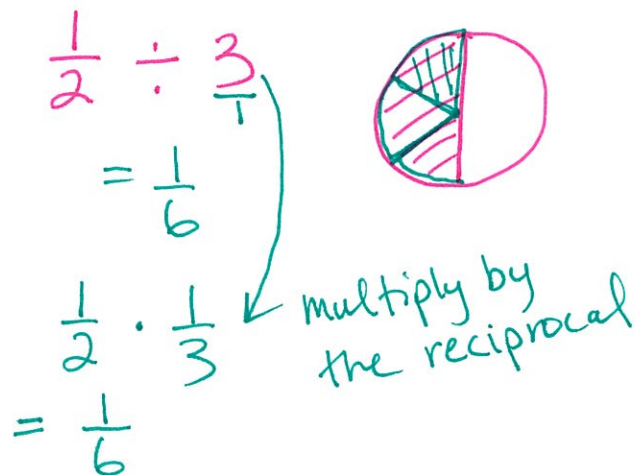 1/2 ÷ 3/1
= 1/6
1/2 · 1/3
multiply by
the reciprocal
= 1/6